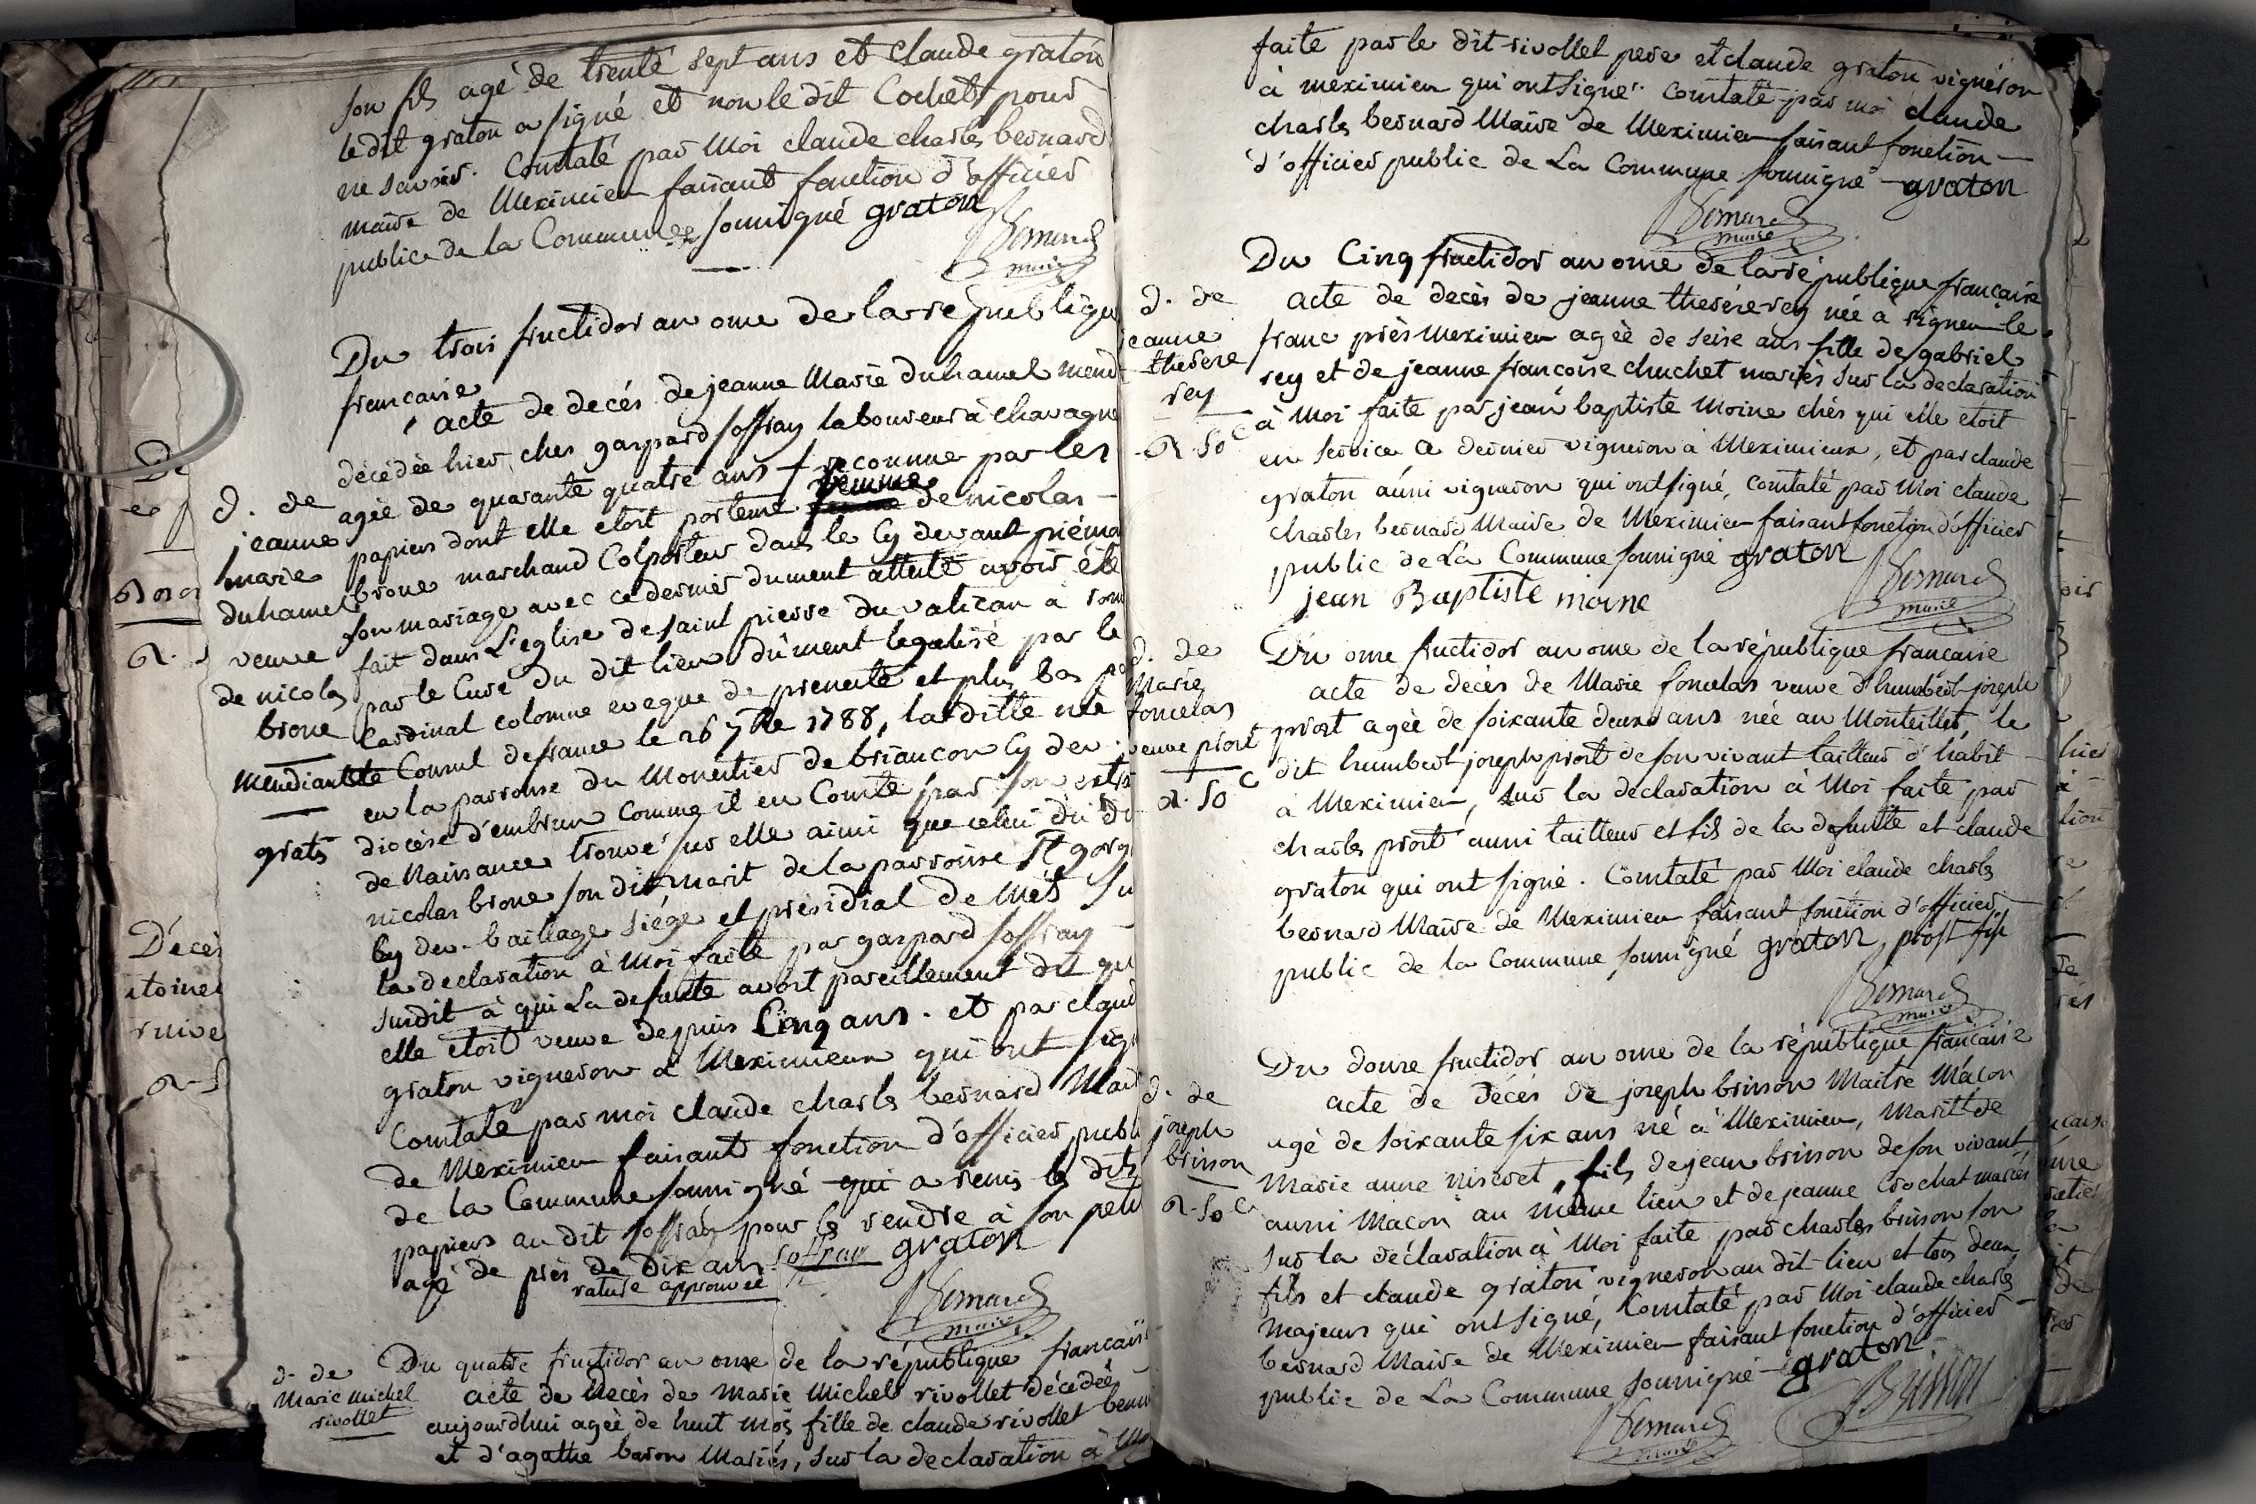 son fils agé de trente sept ans et claude graton
le dit graton a signé et non le dit Cochet pour
ne savoir. Constaté par Moi claude charles bernard
maire de Meximieu faisant fonction d'officier
public de la Commune soussigné graton
Bernard
maire
Du trois fructidor an onse de la républiqu
francaise
acte de decés de jeanne Marie duhamel mend
décédée hier ches gaspard soffray laboureur à chavagne
d. de
jeanne
marie
duhamel
veuve
de nicolas
brone
mendiante
gratis
agée de quarante quatre ans reconnue par les
papiers dont elle etoit porteuse femme de nicolas
brone marchand Colporteur dans le Cy devant piémo
son mariage avec ce dernier dument attesté avoir été
fait dans L'eglise de saint pierre du vatican à rom
par le Curé du dit lieu dûment legalisé par le
Cardinal colonne eveque de preneste et plus bas pa
le Consul de france le 26 7bre 1788, la ditte née
en la parroisse du Monestier de briancon Cy dev.
diocése d'embrun comme il en Conste par son extr
de Naissance trouvé sur elle ainsi que celui du di
nicolas brone son dit marit de la parroisse St gorg
Cy dev. bailiage siége et présidial de Mets su
la declaration à Moi faite par gaspard soffray
susdit à qui La defunte avoit pareillement dit qu
elle etoit veuve depuis Cinq ans. et par claud
graton vigneron à Meximieux qui ont sign
Constaté par moi claude charles bernard Mair
de Meximieu faisant fonction d'officier publi
de la Commune soussigné qui a remis les dits
papiers au dit soffray pour les rendre à son petit
agé de prés de dix ans soffray graton
rature approuvée
Bernard
maire
d. de
Marie Michel
rivollet
Du quatre fructidor an onse de la république francais
acte de decés de Marie Michel rivollet décédée
aujourdhui agée de huit mois fille de claude rivollet
et d'agathe baron Mariés, sur la declaration à Mo
faite par le dit rivollet pere et claude graton vigneron
à meximieu qui ont signé. Constaté par moi claude
charles bernard Maire de Meximieu faisant fonction
d'officier public de La Commune soussigné graton
Bernard
maire
Du Cinq fructidor an onse de la république francaise
d. de
jeanne
therese
rey
2. 50 c
acte de decés de jeanne therése rey née a rigneu le
franc près Meximieu agée de seise ans fille de gabriel
rey et de jeanne francoise chuchet mariés sur la declaration
à Moi faite par jean baptiste Moine chés qui elle etoit
en service ce dernier vigneron à Meximieux, et par claude
graton aussi vigneron qui ont signé, Constaté par Moi claude
charles bernard Maire de Meximieu faisant fonction d'officier
public de La Commune soussigné graton
jean Baptiste moine
Bernard
maire
d. de
Marie
foncelas
veuve prost
2. 50 c
Du onse fructidor an onse de la république francaise
acte de decés de Marie foncelas veuve d'humbert joseph
prost agée de soixante deux ans née au Monteillet, le
dit humbert joseph prost de son vivant tailleur d'habit
à Meximieu, sur la declaration à Moi faite par
charles prost aussi tailleur et fils de la defuntte et claude
graton qui ont signé. Constaté par Moi claude charles
bernard Maire de Meximieu faisant fonction d'officier
public de la Commune soussigné graton prost fils
Bernard
maire
d. de
joseph
brisson
2. 50 c
Du douse fructidor an onse de la république francaise
acte de décés de joseph brisson Maitre Macon
agé de soixante six ans né à Meximieu, Marit de
Marie anne fils de jean brisson de son vivant
aussi Macon au même lieu et de jeanne Crochat mariés
sur la déclaration à Moi faite par charles brisson son
fils et claude graton vigneron au dit lieu et tous deux
Majeurs qui ont signé, Constaté par Moi claude charles
bernard Maire de Meximieu faisant fonction d'officier
public de La Commune soussigné graton
Brisson
Bernard
maire